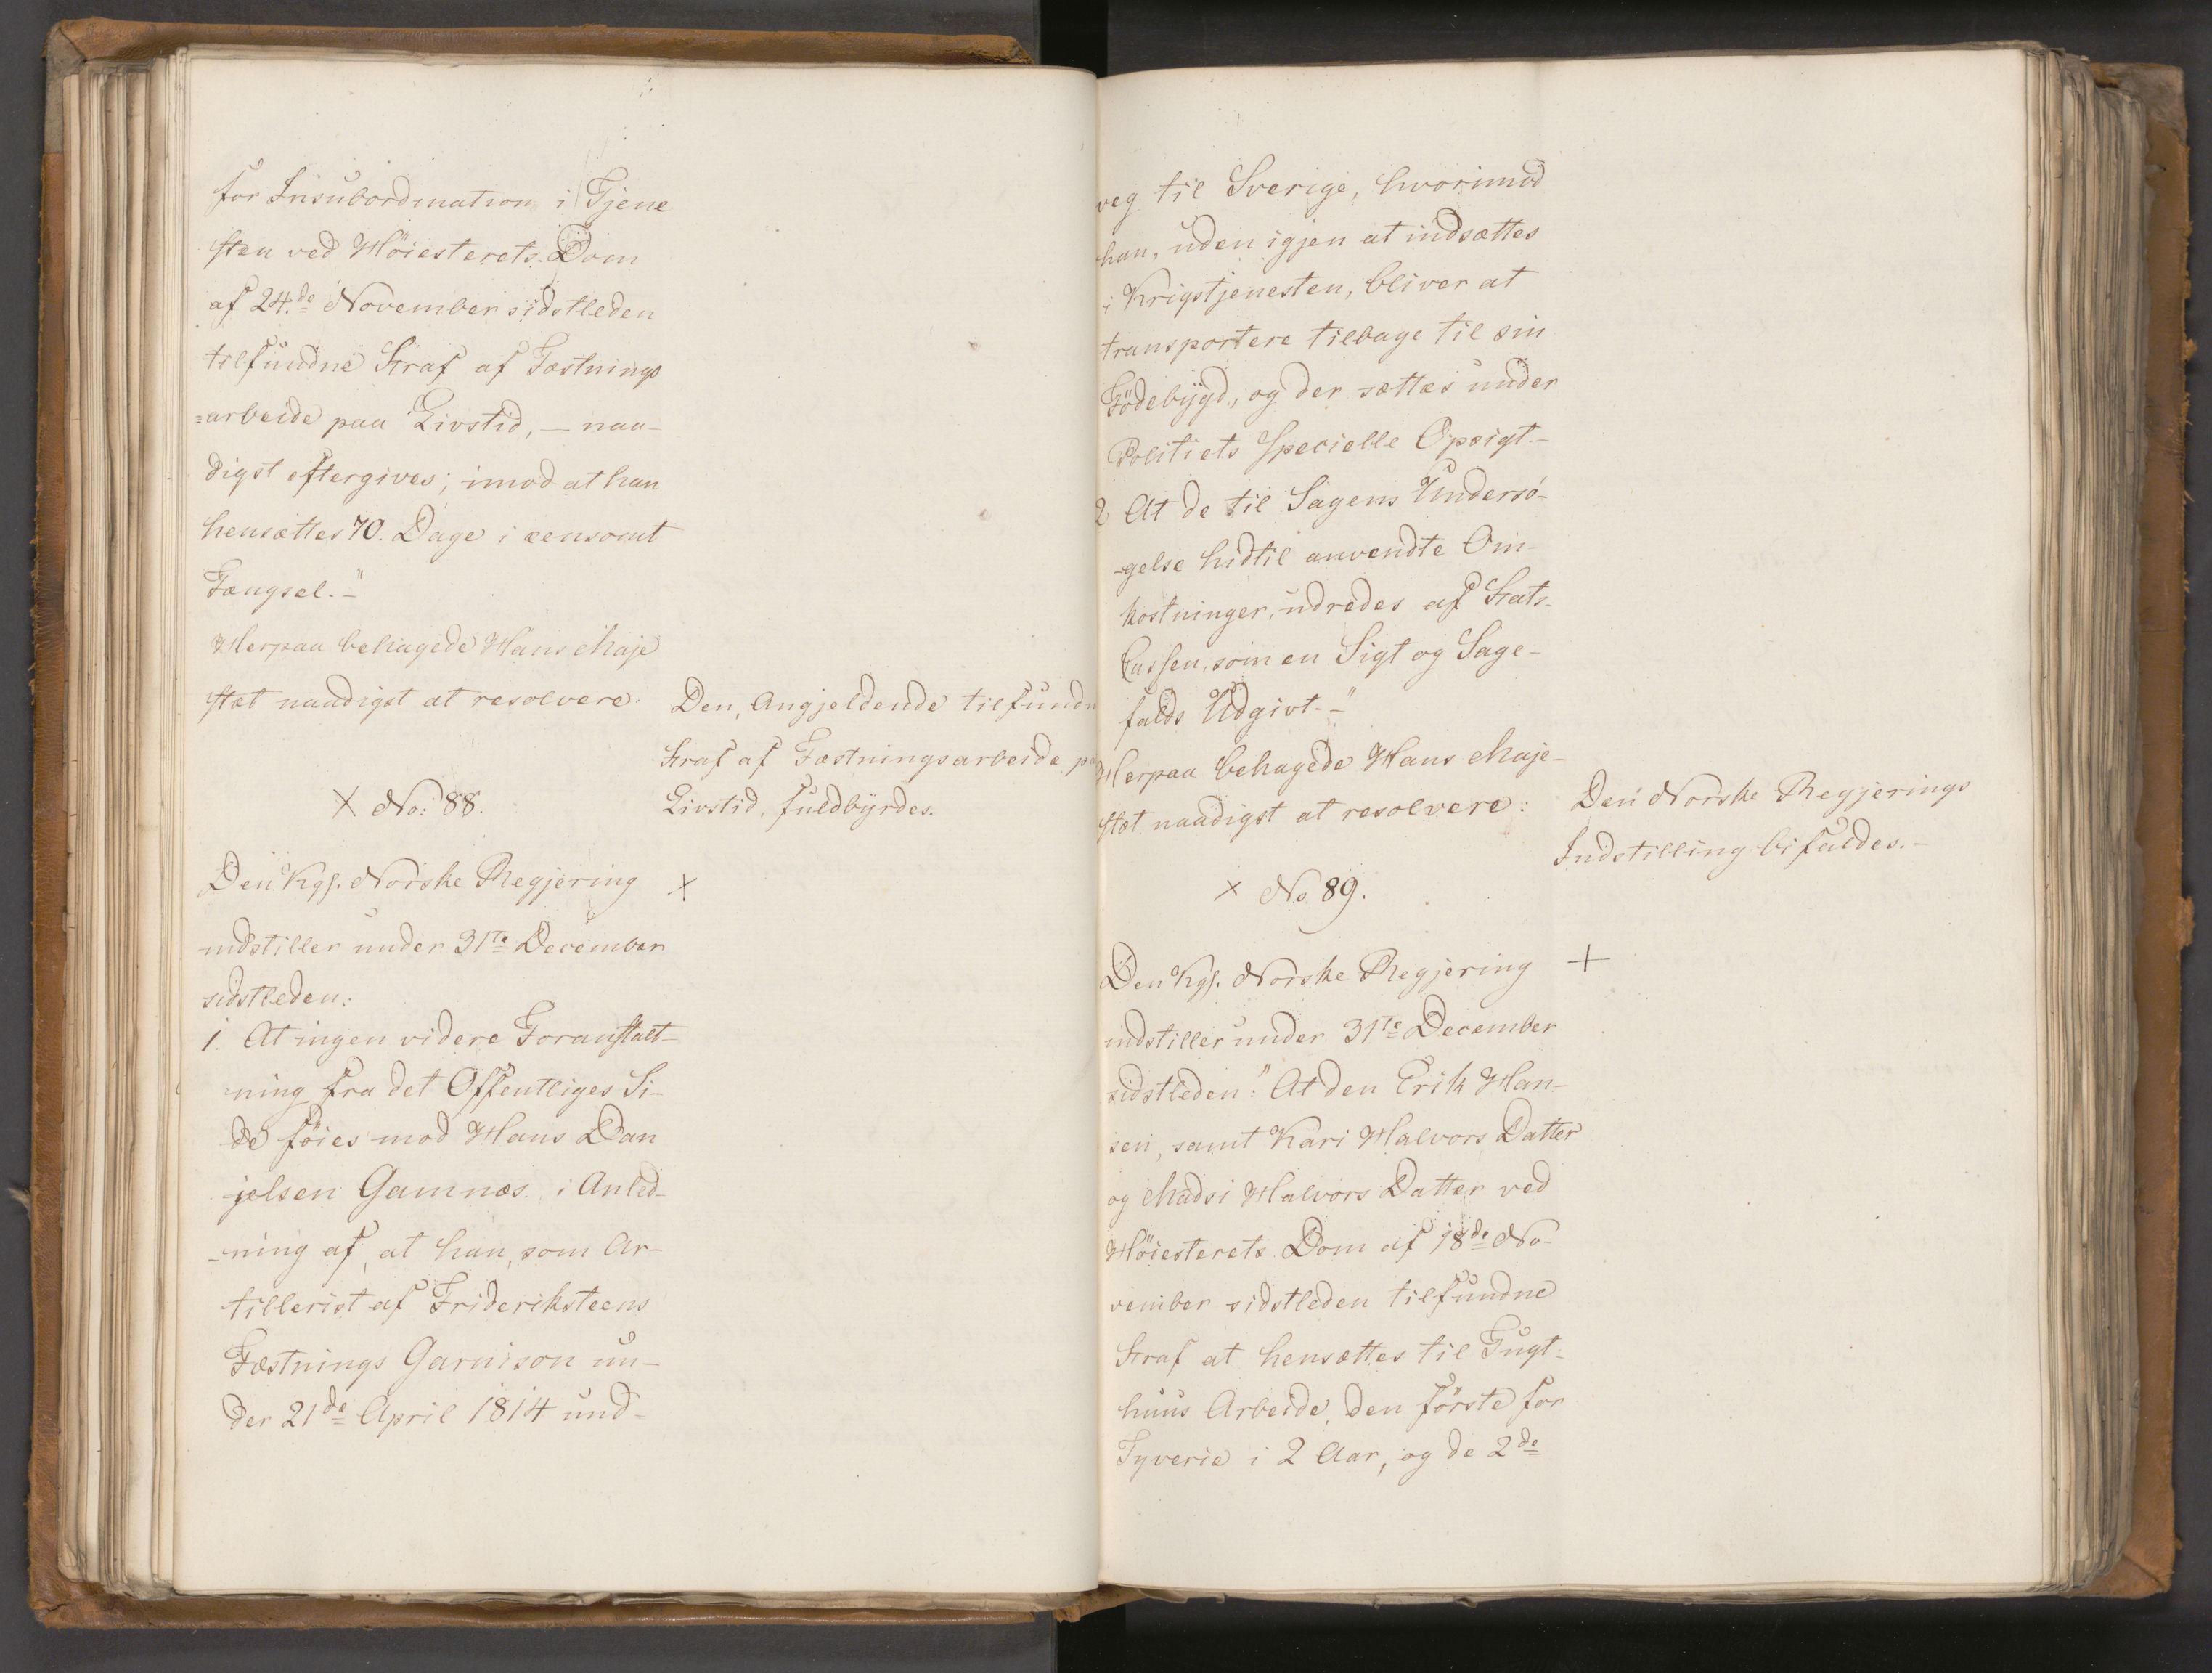 for Insubordination i Tjene
sten ved Höiesterets Dom
af 24de November sidstleden
tilfundne Straf af Fæstnings
=arbeide paa Livstid, — naa-
digst eftergives; imod at han
hensættes 70. Dage i eensomt
Fængsel."-
Herpaa behagede Hans Maje
stæt naadigst at resolvere.
Den, Angjeldende tilfundn
Straf af Fæstningsarbeide p
Livstid, fuldbyrdes.
X No: 88.
Den Kgs. Norske Regjering X
indstiller under 31te December
sidstleden:
1. At ingen videre Foranstalt-
ning fra det Offentliges Si-
de föies mod Hans Dan
jelsen Gamnæs i Anled-
-ning af, at han, som Ar-
tillerist af Frideriksteens
Fæstnings Garnison un-
der 21de April 1814 und-
veg til Sverige, hvorimod
han, uden igjen at indsættes
i Krigstjenesten, bliver at
transportere tilbage til sin
Födebygd, og der sættes under
Politiets specielle Opsigt.-
2 At de til Sagens Undersö-
-gelse hidtil anvendte Om-
kostninger, udredes af Stats-
Cassen, som en Sigt og Sage-
falds Udgivt.-"
Herpaa behagede Hans Maje-
stæt naadigst at resolvere:
Den Norske Regjerings
Indstilling bifaldes.-
X No. 89.
Den Kgs. Norske Regjering +
indstiller under 31te December
sidstleden: "At den Erik Han-
sen, samt Kari Halvors Datter
og Madsi Halvors Datter ved
Höiesterets Dom af 18de No-
vember sidstleden tilfundne
Straf at hensættes til Tugt-
huus Arbeide, den förste for
Tyverie i 2 Aar, og de 2de